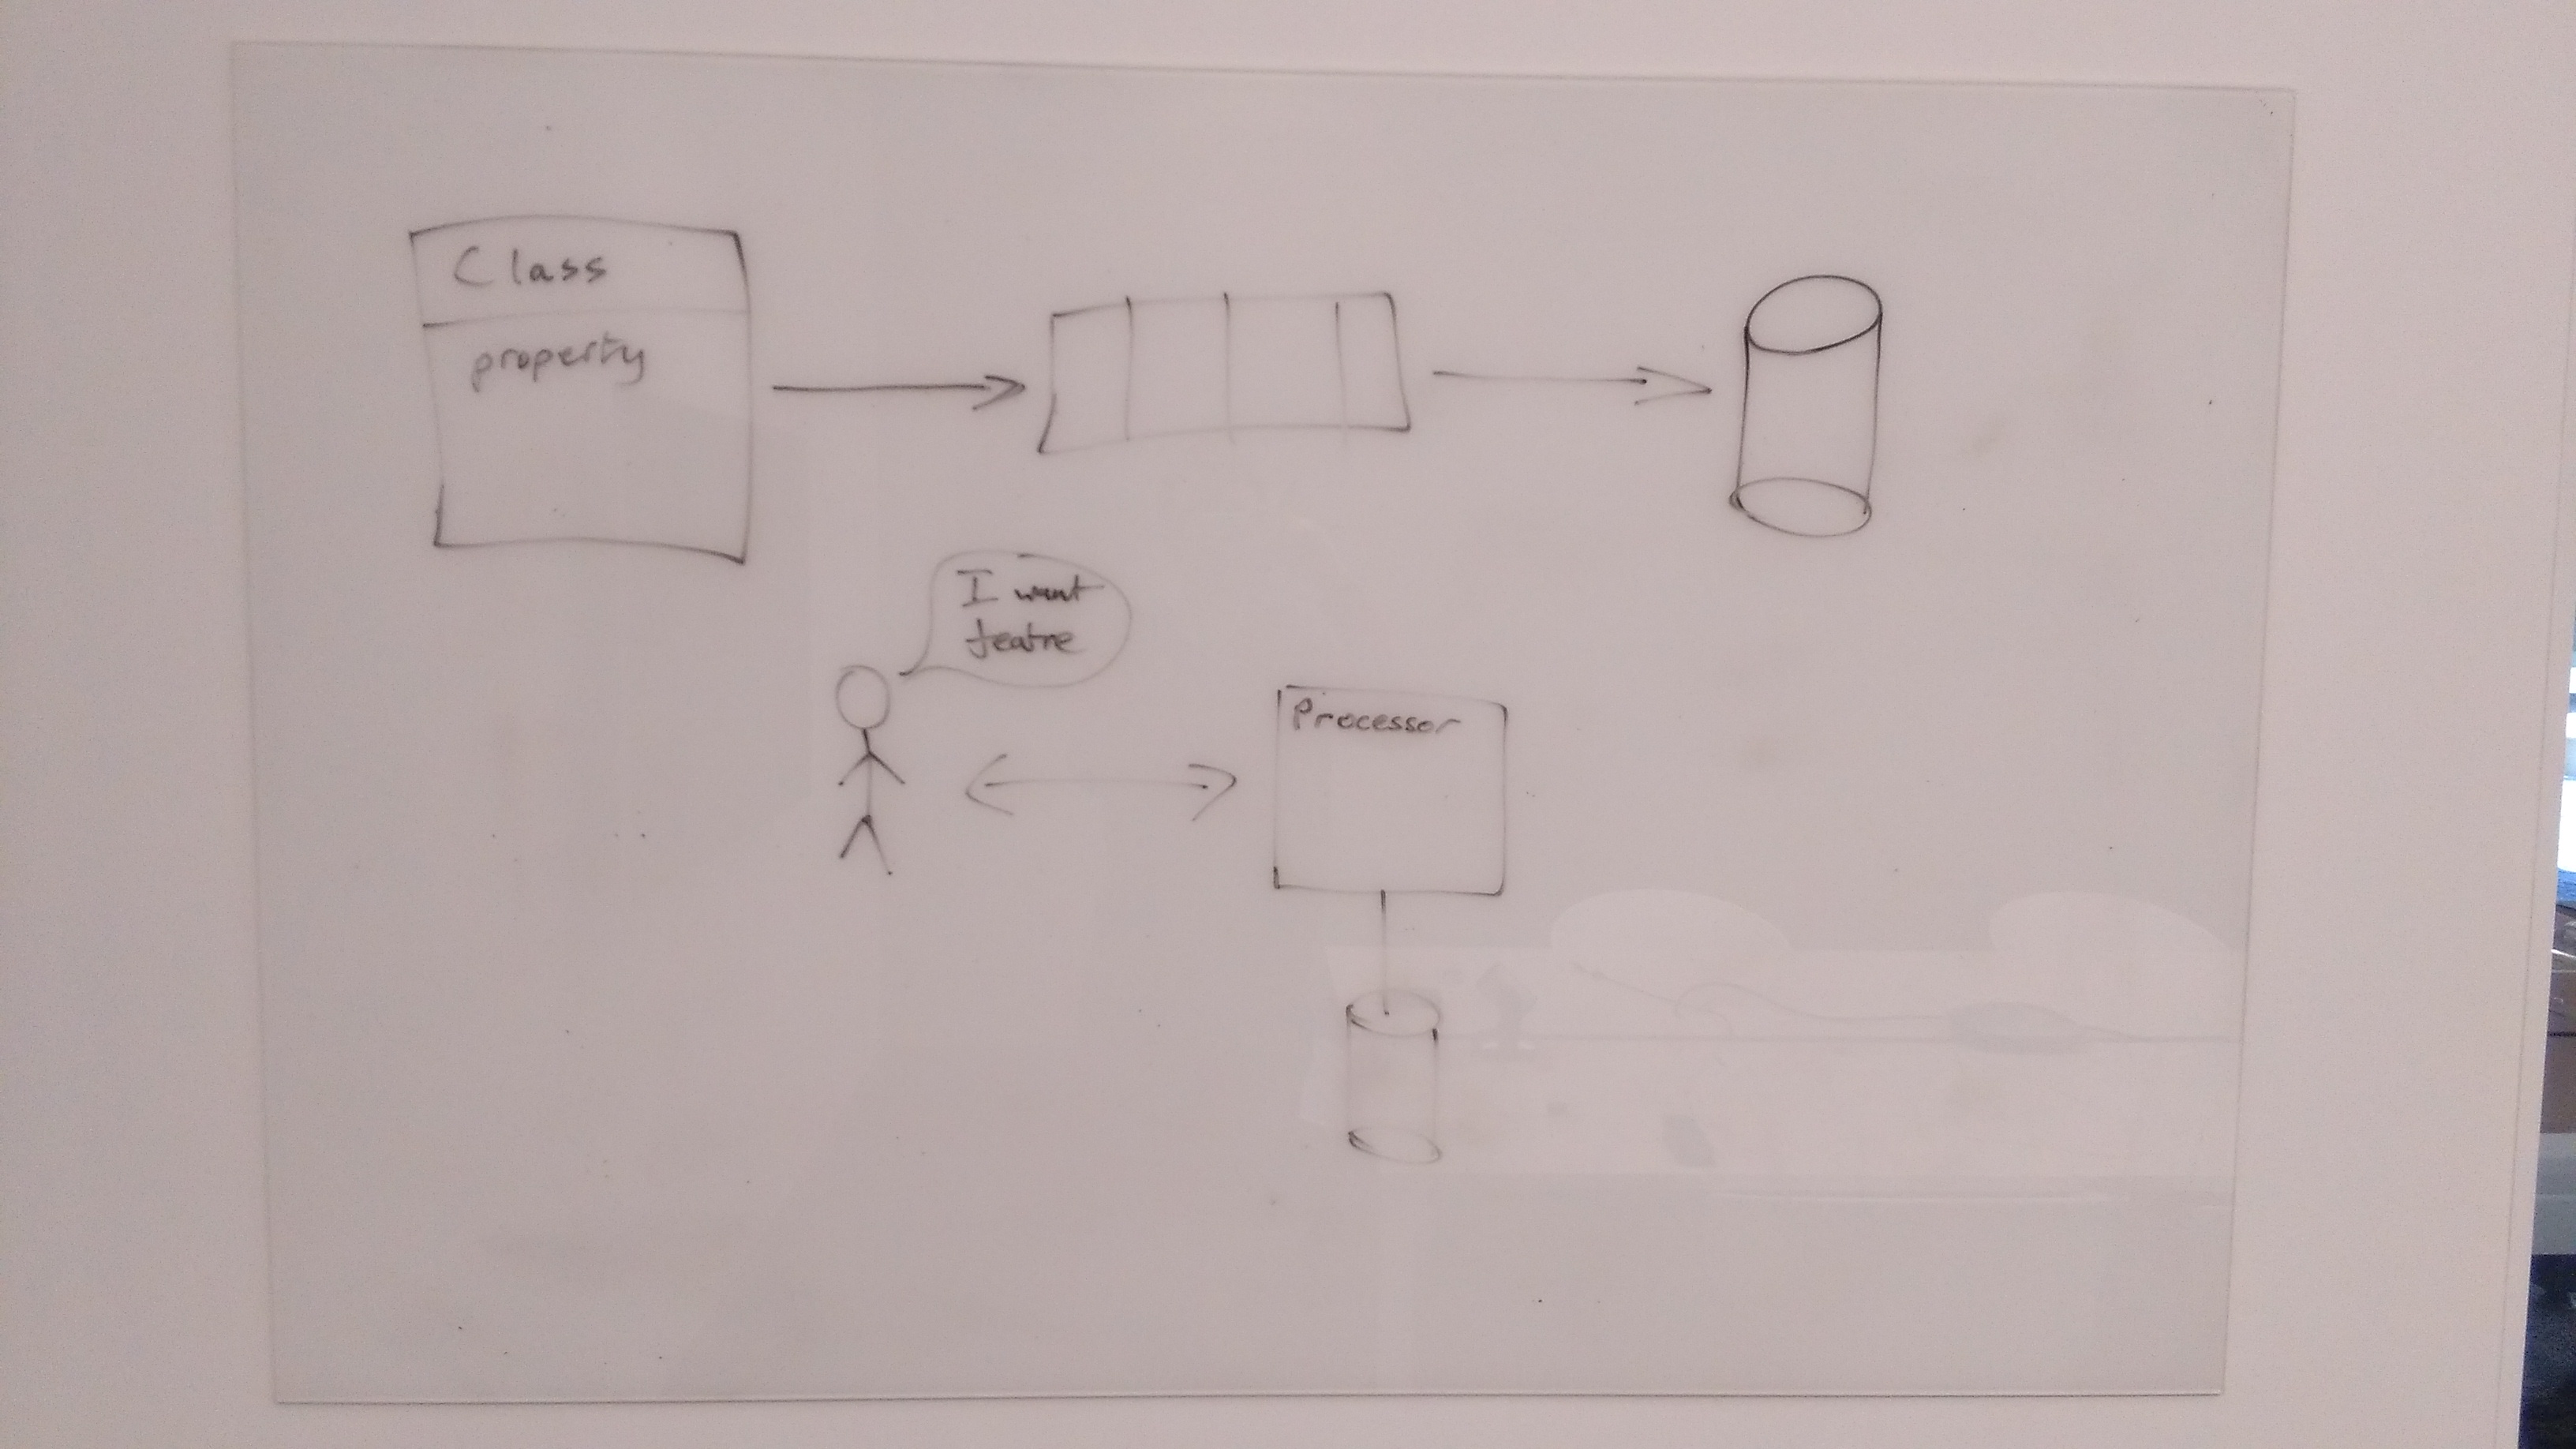 Class
property
I want
featre
Processor